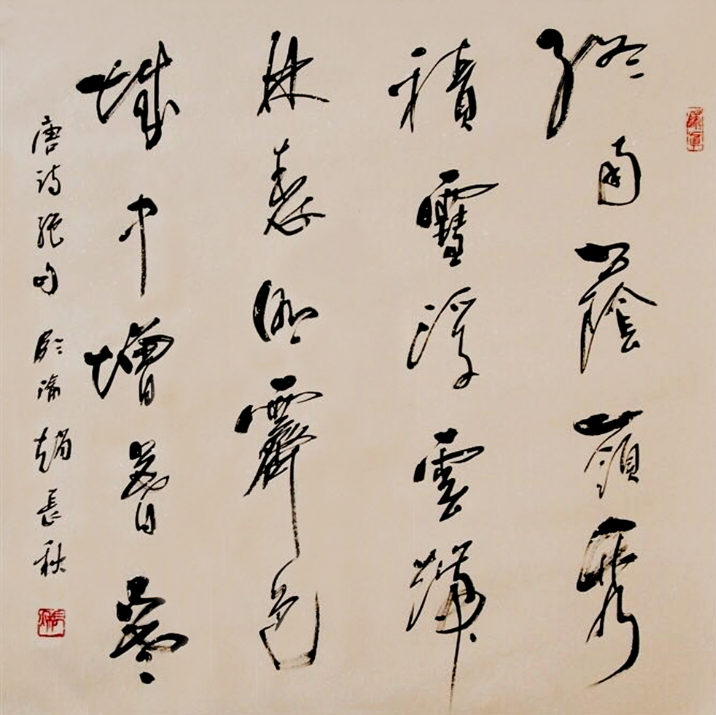 終南蔭嶺秀
積雪浮雲端
林表明霽色
城中增暮寒
唐詩絕句 於濟 趙長秋